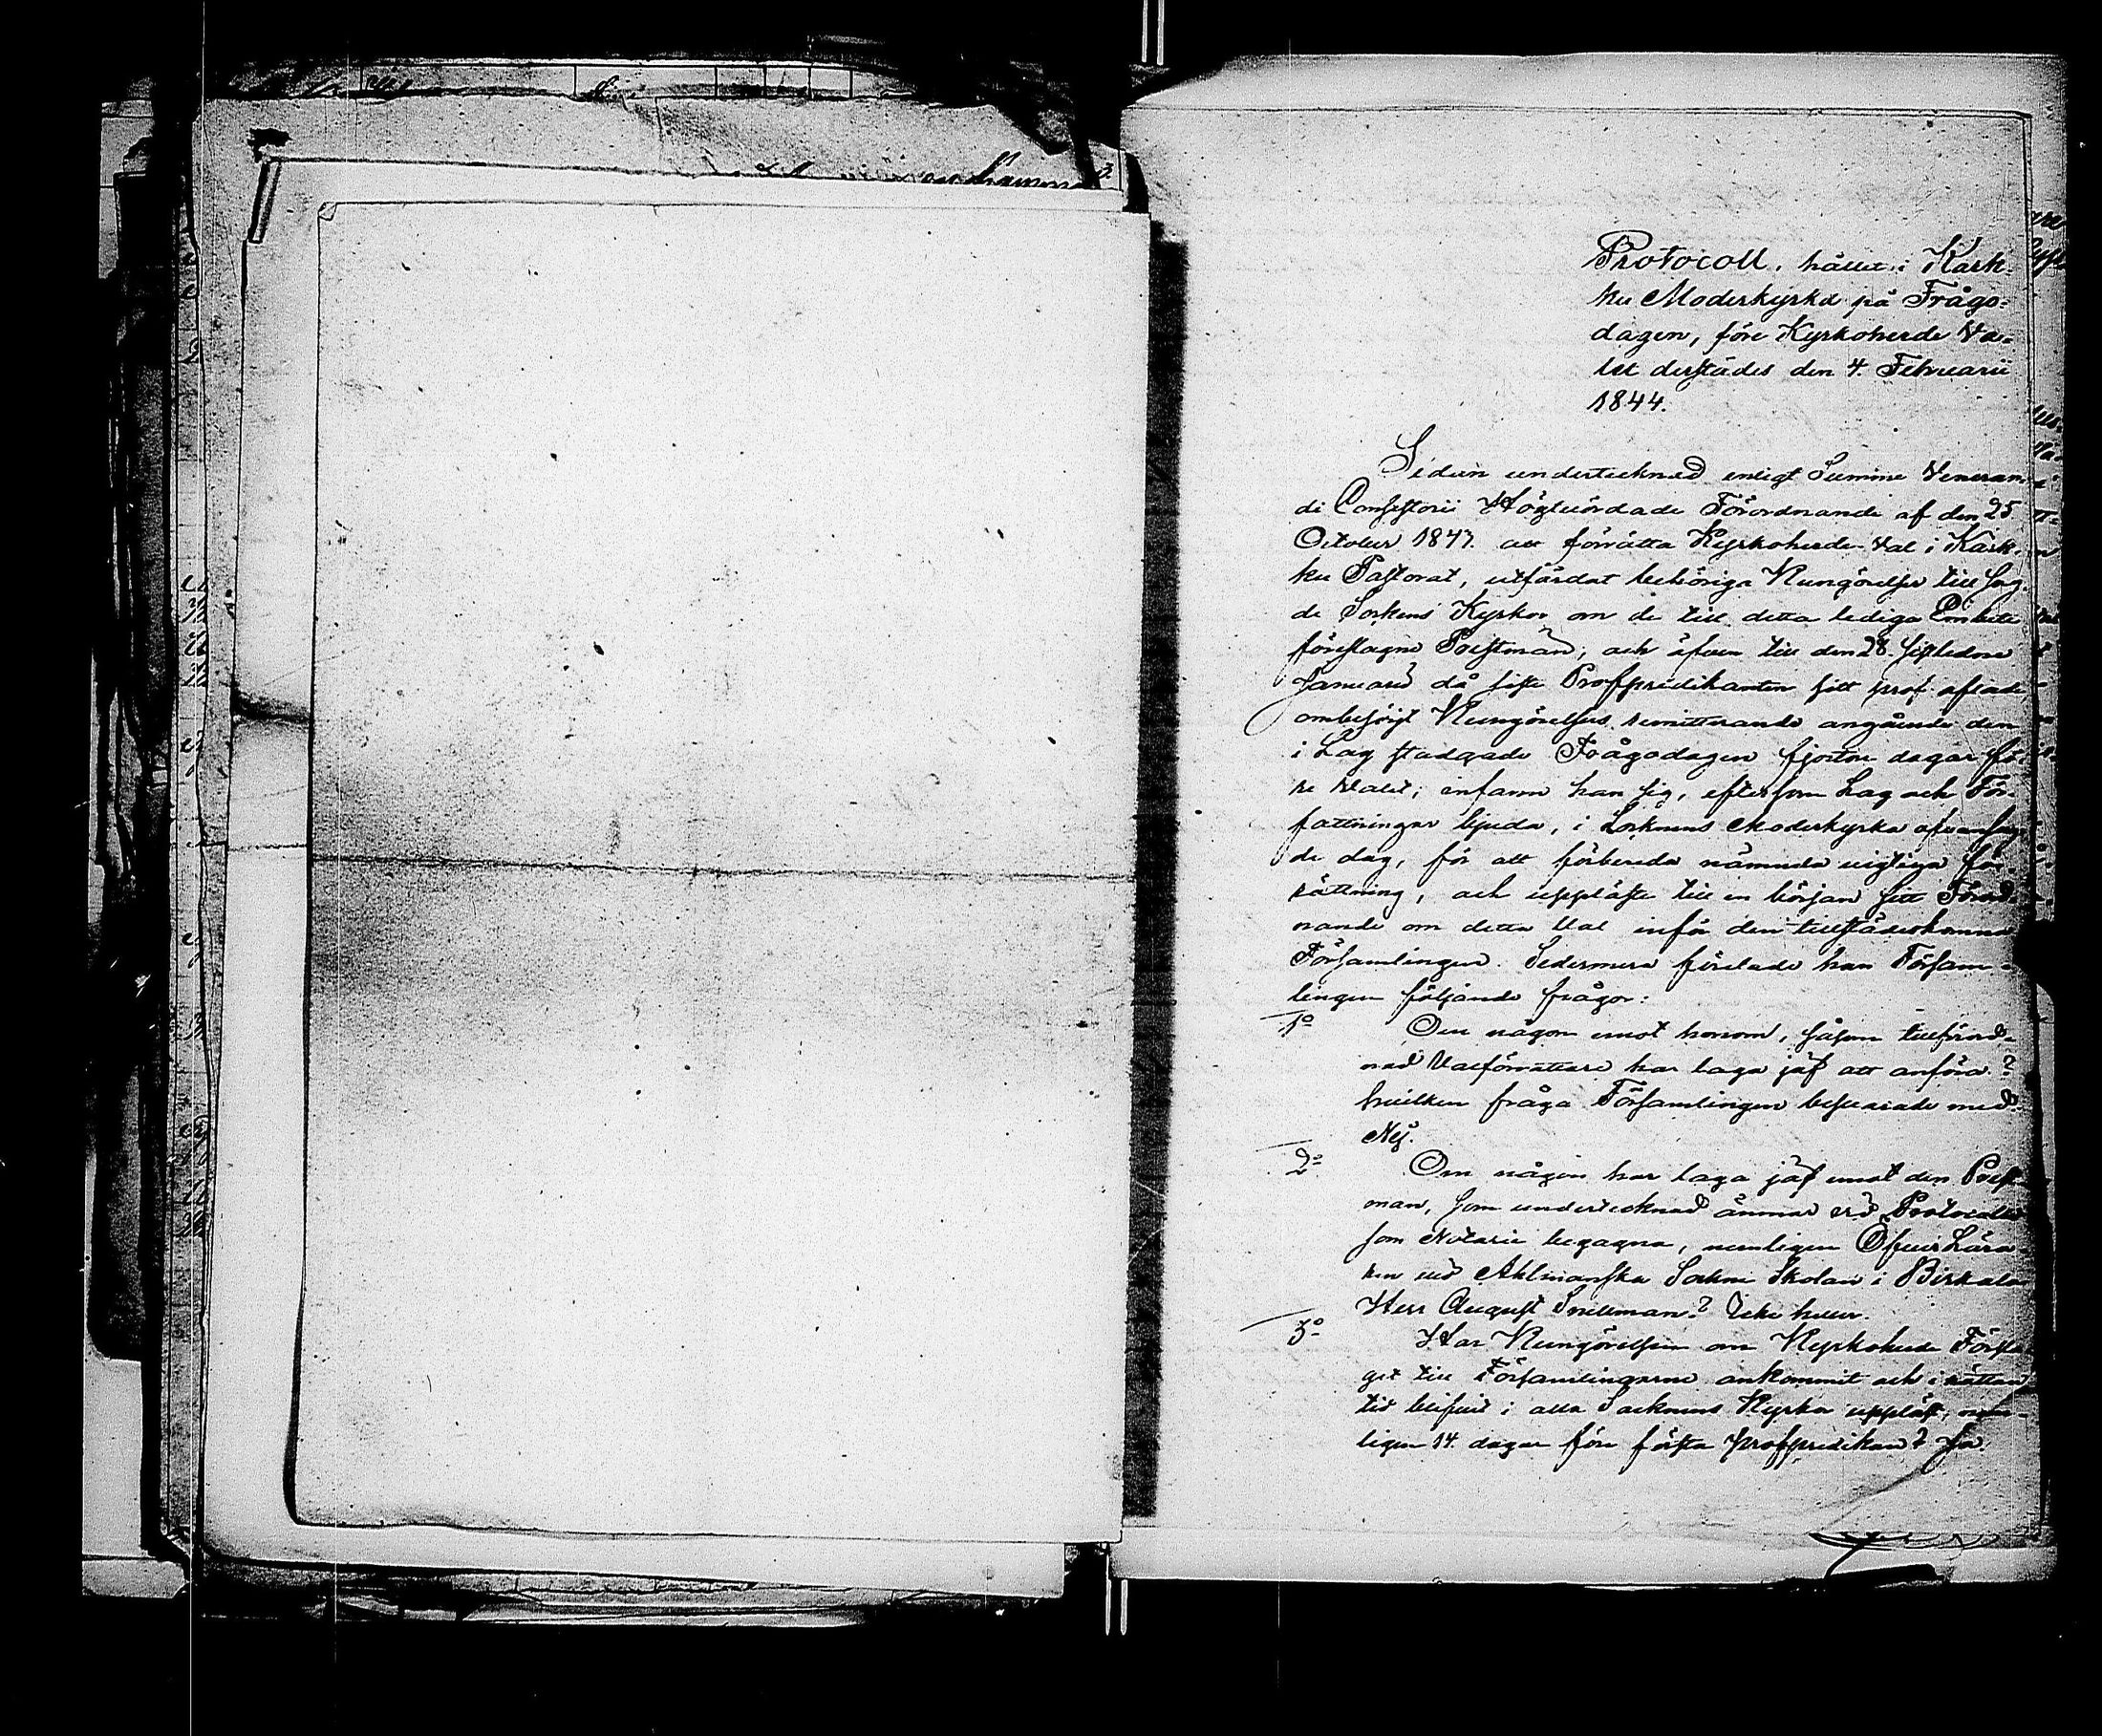 Protocoll, hållet i Kark-
ku Moderkyrka på Frågo-
dagen, före Kyrkoherde Va-
let derstädes den 4. Februarii
1844.
Sedan undertecknad enligt Summe Veneran-
di Consistorii Högtvördade Förordnande af den 25
October 1843. att förrätta Kyrkoherde-Val i Kark-
ku Pastorat, utfärdat behöriga Kungörelser till sag-
de Sockens Kyrkor om de till detta lediga Embete
föreslagne Prestmän; och äfven till den 28. sistledne
Januarii då siste Profpredikanten sitt prof aflade,
ombesörjt Kungörelsers remitterande angående den
i Lag stadgade Frågodagen fjorton dagar fö-
re Valet; infann han sig, eftersom Lag och För-
fattningar bjuda, i Socknens Moderkyrka ofvansag-
de dag, för att förbereda nämnda vigtiga för-
rättning, och uppläste till en början sitt Förord-
nande om detta Val inför den tillstädeskomna
Församlingen. Sedermera förelade han Försam-
lingen följande frågor:
1o Om någon emot honom, såsom tillförord-
nad Valförrättare har laga jäf att anföra?
hvilken fråga Församlingen besvarade med
Nej.
2o Om någon har laga jäf emot den Prest-
man, som undertecknad ämnar vid Protocollet
som Notarie begagna, nemligen ÖfverLära-
ren vid Ahlmanska Sockne Skolan i Birkala
Herr August Snellman? Icke heller.
3o Har Kungörelsen om Kyrkoherde Försla-
get till Församlingarne ankommit och i rättan
tid blifvit i alla Socknens Kyrkor uppläst, nem-
ligen 14. dagar före första profpredikan? Ja.